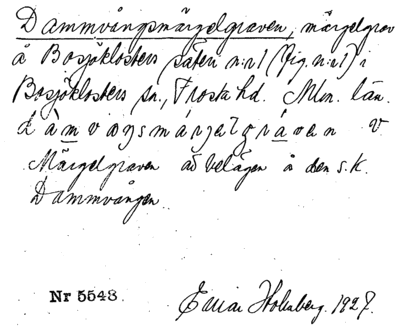 Dammvångsmärgelgraven, märgelgrav
å Bosjöklosters säteri nr 1 (fig. nr 1) i
Bosjöklosters sn., Frosta hd. Mlm. län.
dàmvoŋsmárjəlgràven V
Märgelgraven är belägen å den s.k.
Dammvången.
Nr 5543
Einar Holmberg. 1927.